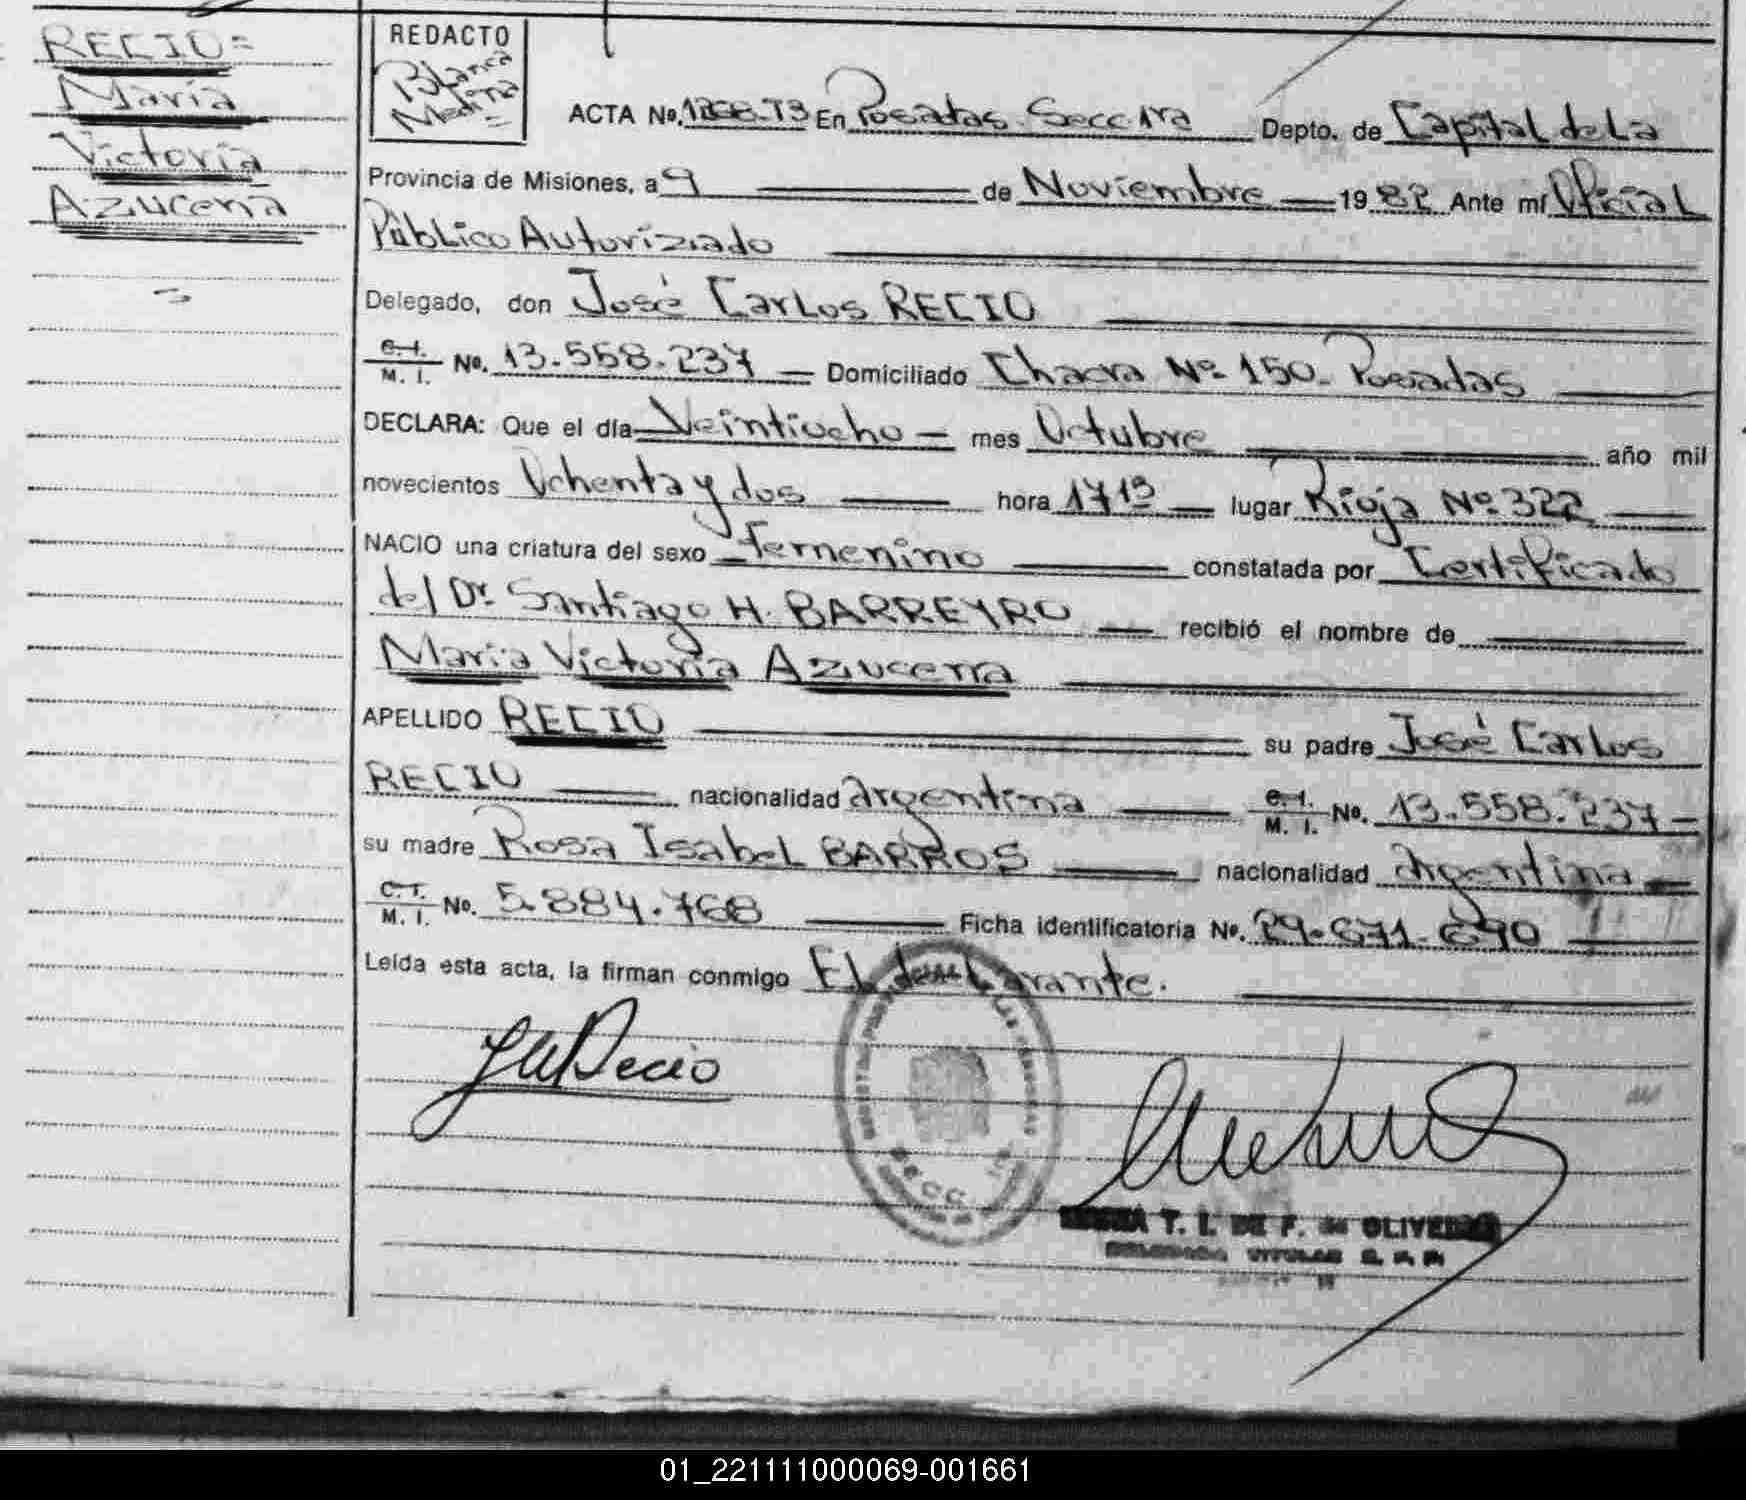 RECIO=
María
Victoria
Azucena
=
REDACTO
Blanca
Medina
=
ACTA No. 1268-T3 En Posadas Secc 1ra Depto. de Capital de La
Provincia de Misiones, a 9 de Noviembre 1982 Ante mí Oficial
Público Autorizado
Delegado, don José Carlos RECIO
C. I. M. I. No. 13.558.237 Domiciliado Chacra Nº 150- Posadas
DECLARA: Que el día Veintiocho mes Octubre año mil
novecientos Ochenta y dos hora 17 15 lugar Rioja Nº 322
NACIO una criatura del sexo femenino constatada por Certificado
del Dr. Santiago H. BARREYRO recibió el nombre de
María Victoria Azucena
APELLIDO RECIO su padre José Carlos
RECIO nacionalidad argentina C. I. M. I. No. 13.558.237-
su madre Rosa Isabel BARROS nacionalidad argentina
C. I. M. I. No. 5.884.768 Ficha identificatoria No. 29.671.690
Leída esta acta, la firman conmigo El declarante.
Recio
SECC. 1ra
T. I. DE F. de OLIVEIRA
DELEGADA TITULAR
01_221111000069-001661